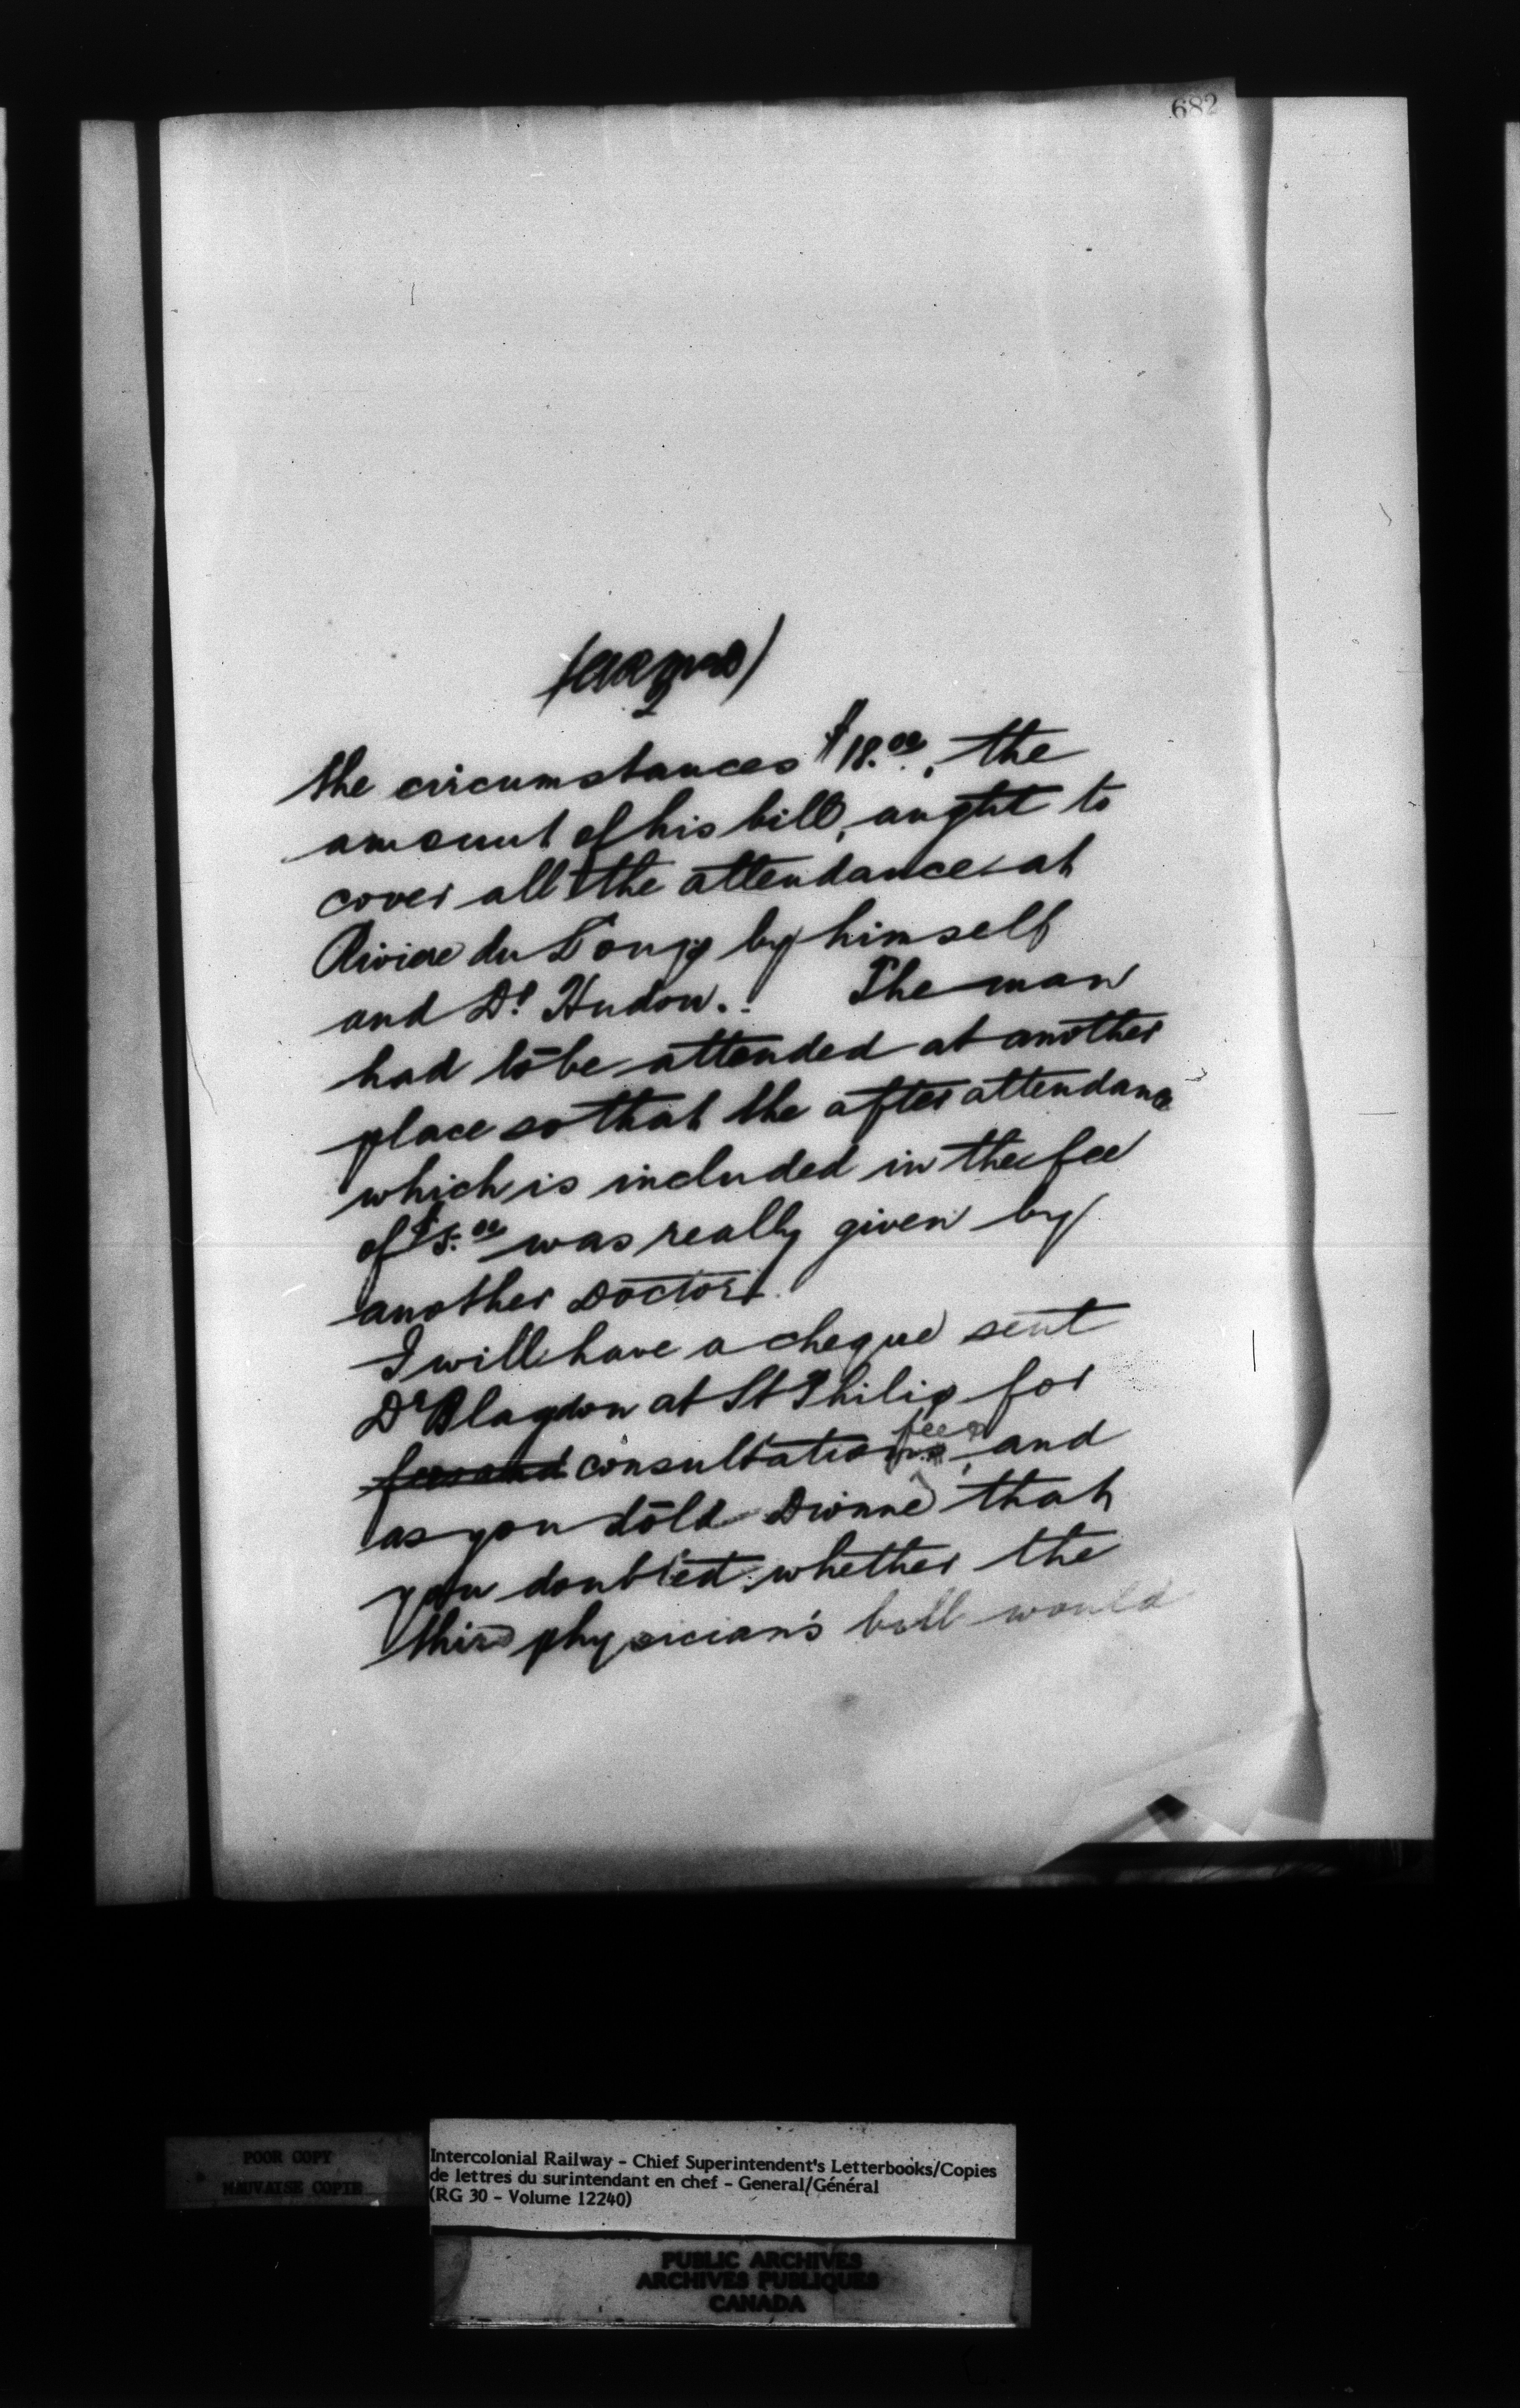 682
the circumstances $18.00, the
amount of his bill, aught to
cover all the attendance at
Riviere du Loup by himself
and Dr Hudon. The man
had to be attended at another
place so that the after attendance
which is included in the fee
of $5.00 was really given by
another Doctor.
I will have a cheque sent
Dr Blagdon at St Philip for
fees and consultation fees, and
as you told Dionne that
you doubted whether the
third physician's bill would
POOR COPY
MAUVAISE COPIE
Intercolonial Railway - Chief Superintendent's Letterbooks/Copies
de lettres du surintendant en chef - General/Général
(RG 30 - Volume 12240)
PUBLIC ARCHIVES
ARCHIVES PUBLIQUES
CANADA